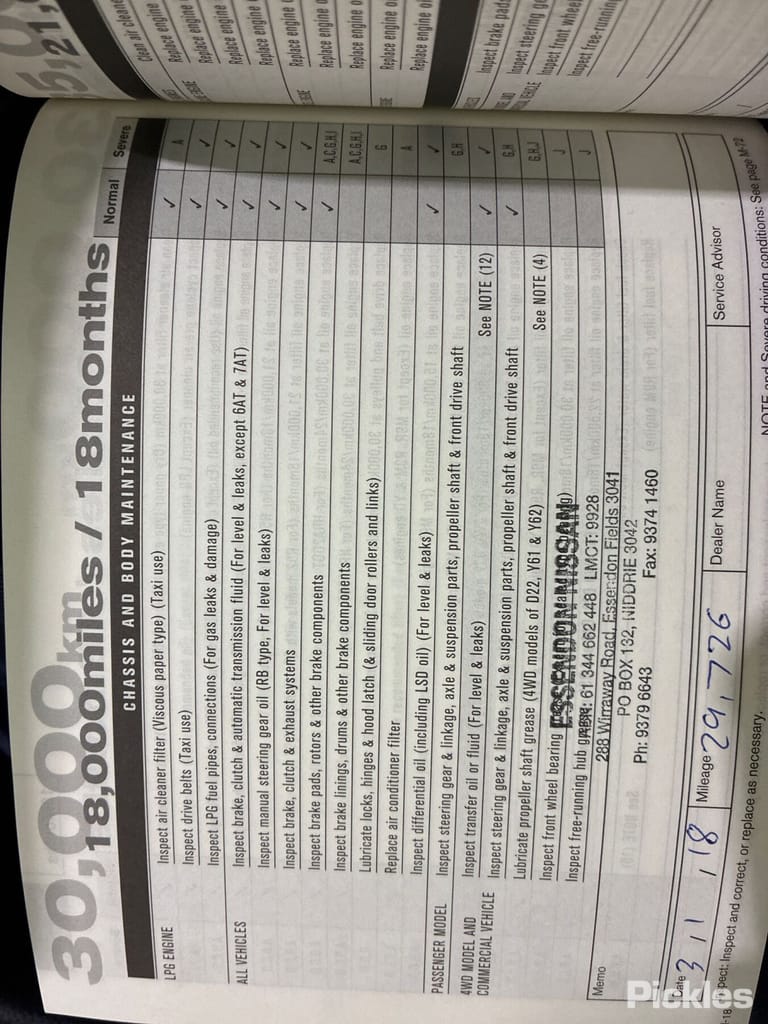 30,000km
18,000miles / 18months
Normal Severe
CHASSIS AND BODY MAINTENANCE
LPG ENGINE Inspect air cleaner filter (Viscous paper type) (Taxi use) ✓ A
Inspect drive belts (Taxi use) ✓
Inspect LPG fuel pipes, connections (For gas leaks & damage) ✓ ✓
ALL VEHICLES Inspect brake, clutch & automatic transmission fluid (For level & leaks, except 6AT & 7AT) ✓ ✓
Inspect manual steering gear oil (RB type, For level & leaks) ✓ ✓
Inspect brake, clutch & exhaust systems ✓ ✓
Inspect brake pads, rotors & other brake components ✓ A,C,G,H,I
Inspect brake linings, drums & other brake components A,C,G,H,I
Lubricate locks, hinges & hood latch (& sliding door rollers and links) G
Replace air conditioner filter A
Inspect differential oil (including LSD oil) (For level & leaks) ✓ ✓
PASSENGER MODEL Inspect steering gear & linkage, axle & suspension parts, propeller shaft & front drive shaft G,H
4WD MODEL AND Inspect transfer oil or fluid (For level & leaks) See NOTE (12) ✓ ✓
COMMERCIAL VEHICLE Inspect steering gear & linkage, axle & suspension parts, propeller shaft & front drive shaft ✓ G,H
Lubricate propeller shaft grease (4WD models of D22, Y61 & Y62) See NOTE (4) G,H,J
Inspect front wheel bearing J
Inspect free-running hub grease J
Memo
ESSENDON NISSAN
61 344 662 448 LMCT: 9928
288 Wirraway Road, Essendon Fields 3041
PO BOX 132, NIDDRIE 3042
Ph: 9379 6643 Fax: 9374 1460
Date 3 / 1 / 18 Mileage 29,726 Dealer Name Service Advisor
Inspect: Inspect and correct, or replace as necessary.
driving conditions: See page M-72
Clean air cleane
Replace engine
Inspect brake pads
Inspect steering ge
Inspect front wheel
Inspect free-running
Pickles